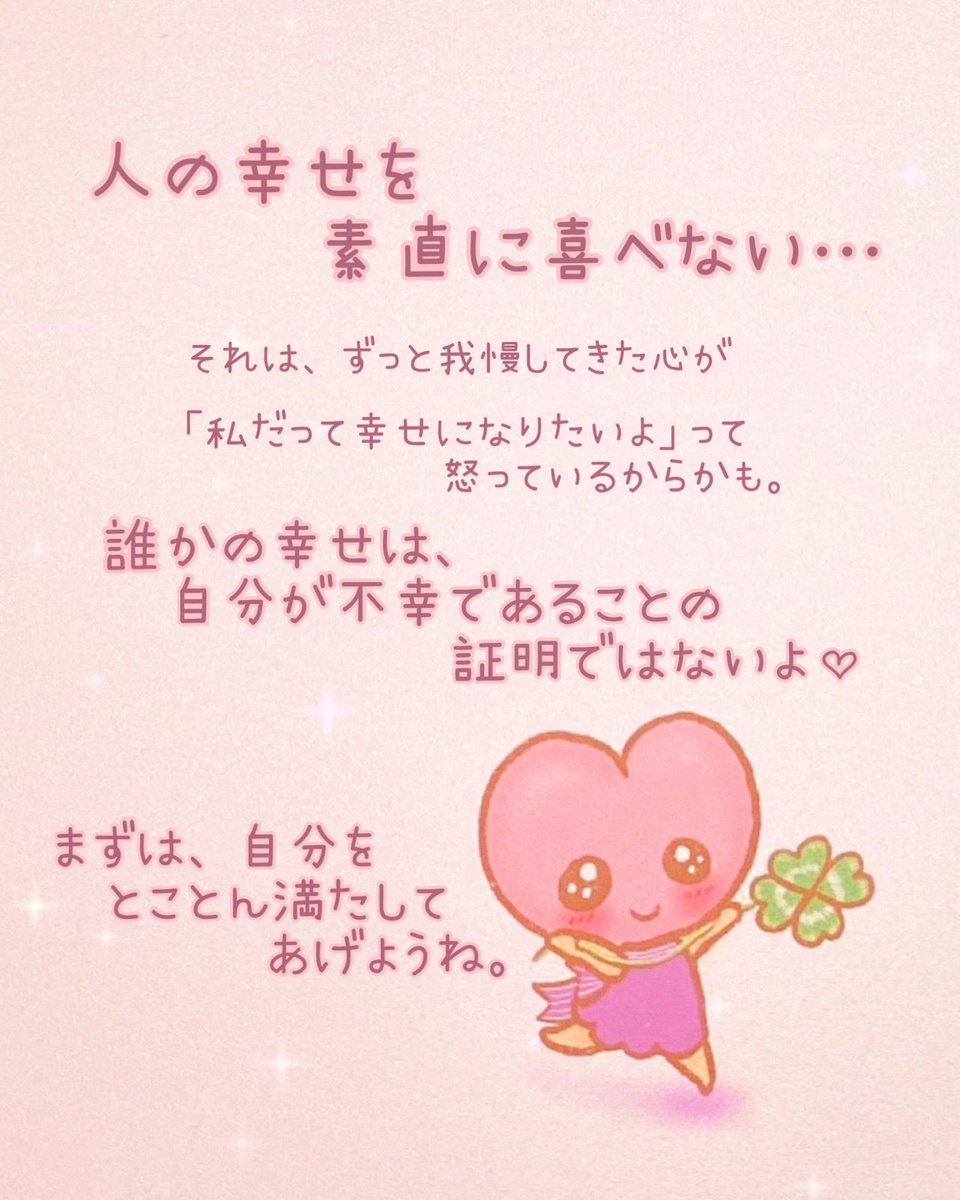 人の幸せを
素直に喜べない…
それは、ずっと我慢してきた心が
「私だって幸せになりたいよ」って
怒っているからかも。
誰かの幸せは、
自分が不幸であることの
証明ではないよ♡
まずは、自分を
とことん満たして
あげようね。